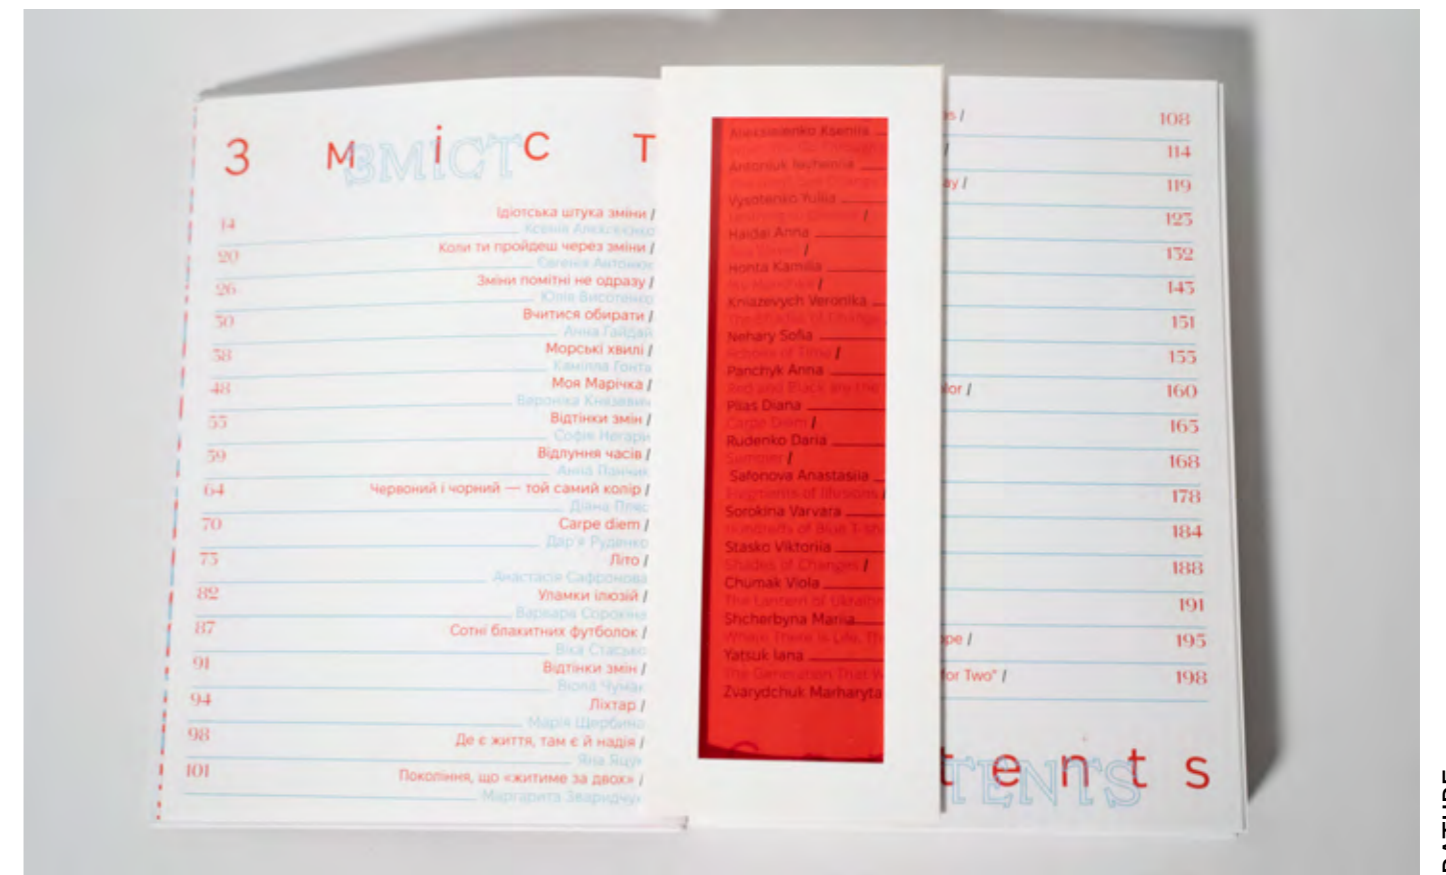 З м і с т
ЗМІСТ
Ідіотська штука зміни /
14
Ксенія Алексієнко
Коли ти пройдеш через зміни /
20
Євгенія Антонюк
Зміни помітні не одразу /
26
Юлія Висотенко
Вчитися обирати /
30
Анна Гайдай
Морські хвилі /
38
Камілла Гонта
Моя Марічка /
48
Вероніка Князевич
Відтінки змін /
55
Софія Негари
Відлуння часів /
59
Анна Панчик
Червоний і чорний — той самий колір /
64
Діана Пляс
Carpe diem /
70
Дар'я Руденко
Літо /
75
Анастасія Сафронова
Уламки ілюзій /
82
Варвара Сорокіна
Сотні блакитних футболок /
87
Віка Стасько
Відтінки змін /
91
Віола Чумак
Ліхтар /
94
Марія Щербина
Де є життя, там є й надія /
98
Яна Яцук
Покоління, що «житиме за двох» /
101
Маргарита Зваридчук
Aleksiienko Kseniia
Antoniuk Ievheniia
Vysotenko Yuliia
/
Haidai Anna
/
Honta Kamilla
/
Kniazevych Veronika
The Shades of Change
Nehary Sofia
Echoes of Time /
Panchyk Anna
Red and Black are the
Plias Diana
Carpe Diem /
Rudenko Daria
Summer /
Safonova Anastasiia
Fragments of Illusions /
Sorokina Varvara
Hundreds of Blue T-sh
Stasko Viktoriia
Shades of Changes /
Chumak Viola
The Lantern of Ukraine
Shcherbyna Mariia
Where There is Life, Th
Yatsuk Iana
The Generation That W
Zvarydchuk Marharyta
s / 108
/ 114
ay / 119
125
132
143
151
155
lor / 160
165
168
178
184
188
191
ope / 195
for Two" / 198
t e n t s
TENTS